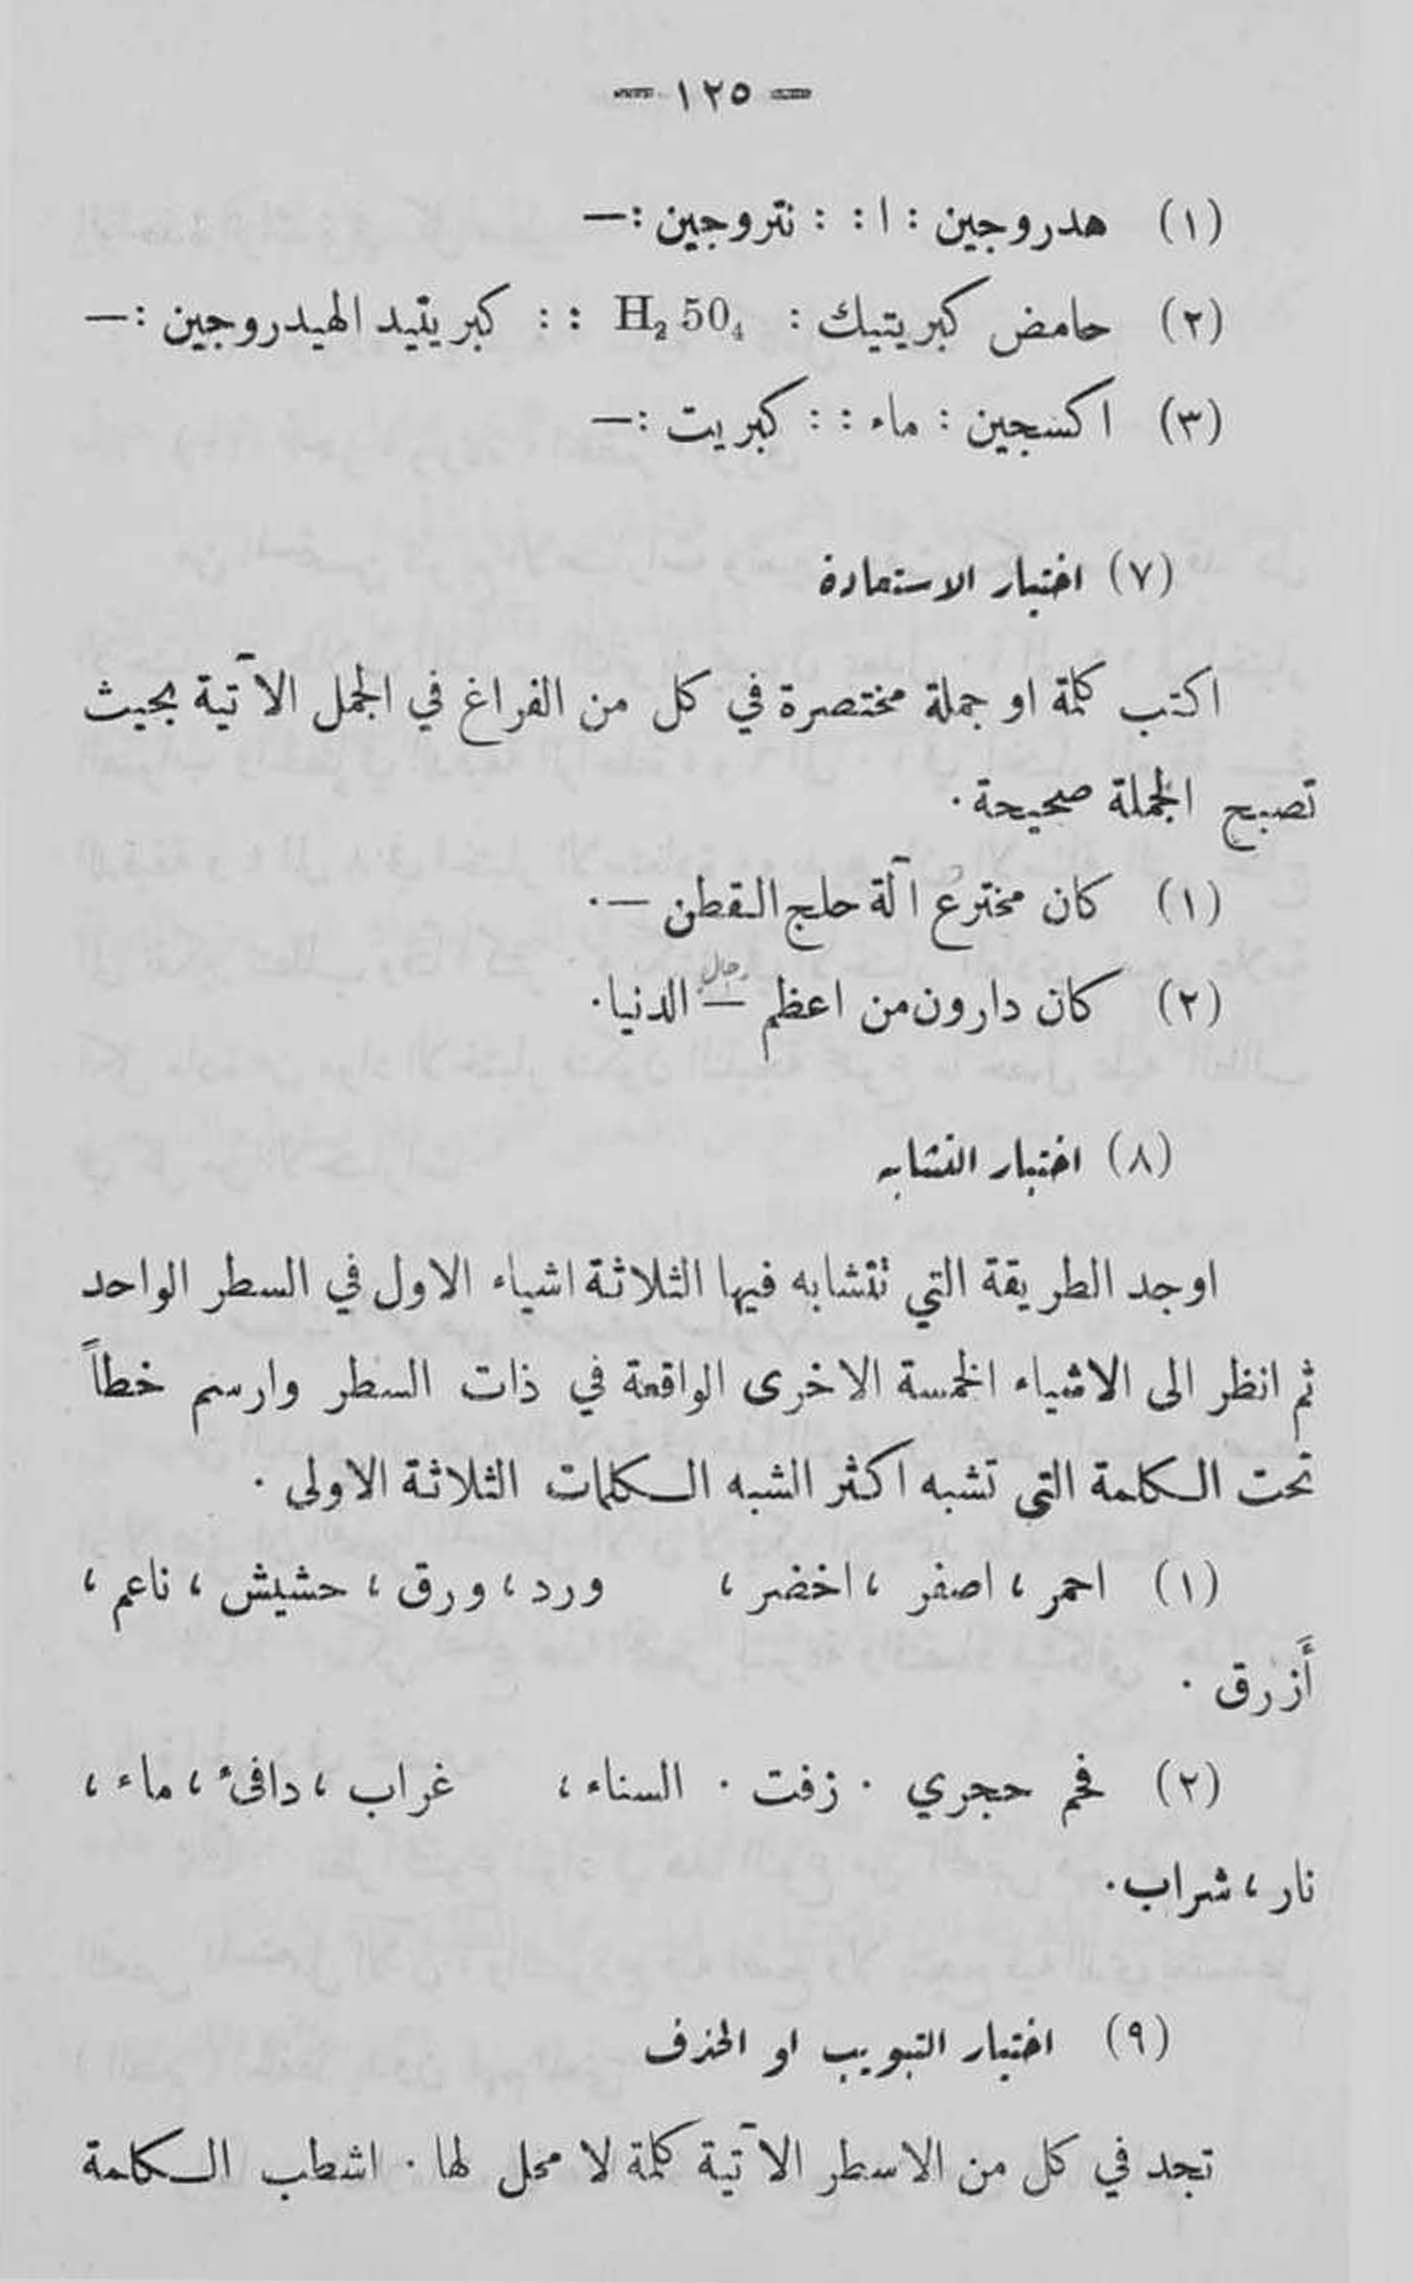 — ١٢٥ —
(١) هدروجين : ١ : : نتروجين :—
(٢) حامض كبريتيك : H₂ 50₄ : : كبريتيد الهيدروجين :—
(٣) اكسجين : ماء : : كبريت :—
(٧) اختبار الاستعادة
اكتب كلمة او جملة مختصرة في كل من الفراغ في الجمل الآتية بحيث
تصبح الجملة صحيحة .
(١) كان مخترع آلة حلج القطن — .
رجال
(٢) كان دارون من اعظم — الدنيا .
(٨) اختبار التشابه
اوجد الطريقة التي تتشابه فيها الثلاثة اشياء الاول في السطر الواحد
ثم انظر الى الاشياء الخمسة الاخرى الواقعة في ذات السطر وارسم خطاً
تحت الكلمة التي تشبه اكثر الشبه الكلمات الثلاثة الاولى .
(١) احمر ، اصفر ، اخضر ، ورد ، ورق ، حشيش ، ناعم ،
أزرق .
(٢) فحم حجري . زفت . السناء ، غراب ، دافئ ، ماء ،
نار ، شراب .
(٩) اختبار التبويب او الحذف
تجد في كل من الاسطر الآتية كلمة لا محل لها . اشطب الكلمة